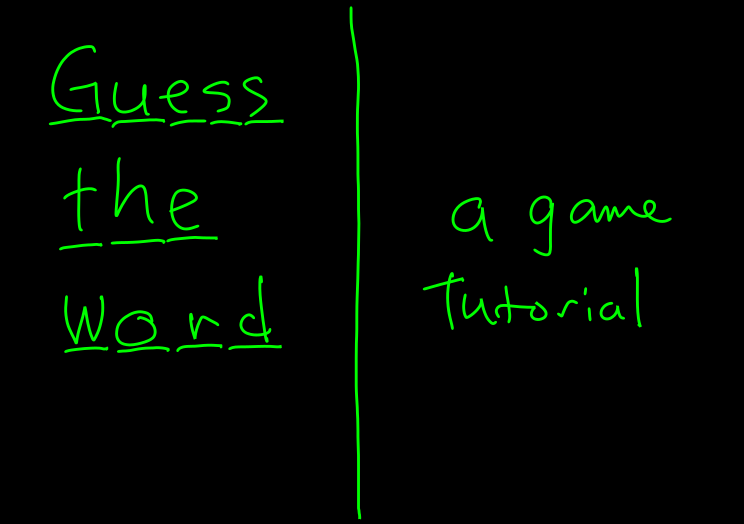 Guess
the
Word
a game
Tutorial